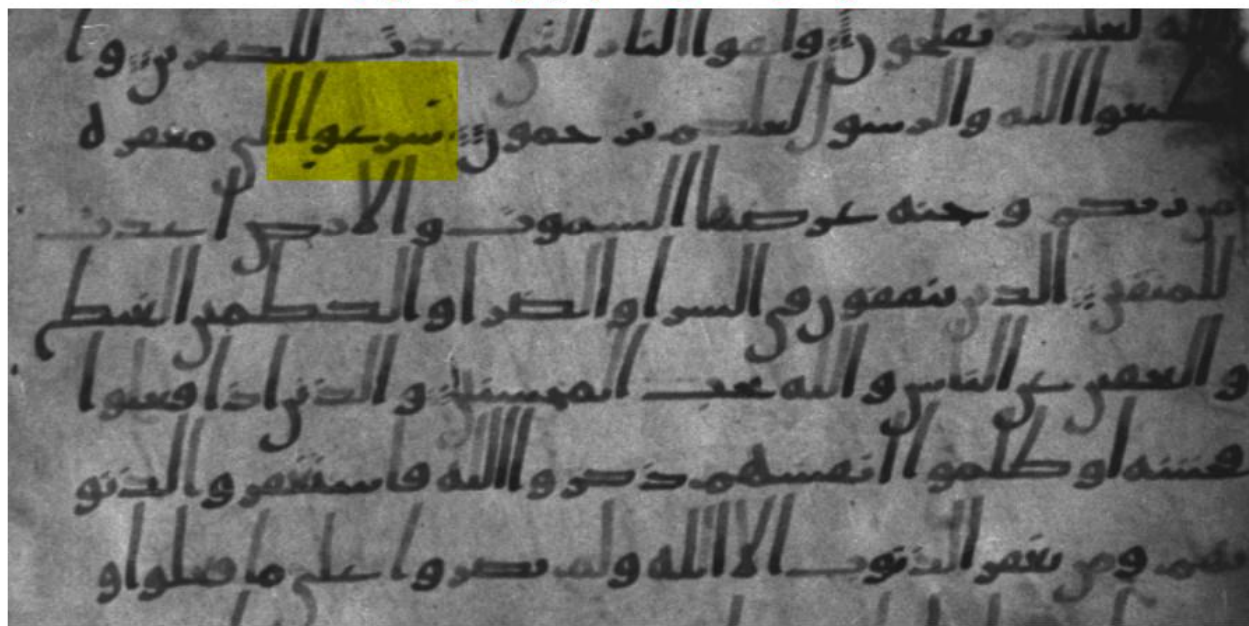 الله لعلكم تفلحون واتقوا النار التي اعدت للكفرين وا
طيعوا الله والرسول لعلكم ترحمون سرعوا الى مغفره
من ربكم وجنه عرضها السموت والارض اعدت
للمتقين الذين ينفقون في السرا والضرا والكظمين الغيظ
والعفين عن الناس والله يحب المحسنين والذين اذا فعلوا
فحشه او ظلموا انفسهم ذكروا الله فاستغفروا لذنو
بهم ومن يغفر الذنوب الا الله ولم يصروا على ما فعلوا و